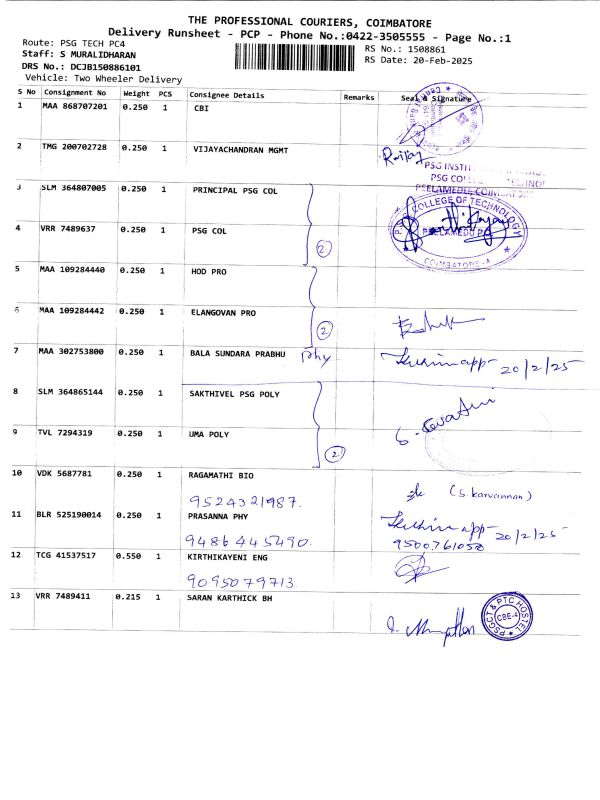 THE PROFESSIONAL COURIERS, COIMBATORE
Delivery Runsheet - PCP - Phone No.:0422-3505555 - Page No.:1
Route: PSG TECH PC4
RS No.: 1508861
Staff: S MURALIDHARAN
RS Date: 20-Feb-2025
DRS No.: DCJB150886101
Vehicle: Two Wheeler Delivery
S No Consignment No Weight PCS Consignee Details Remarks Seal & Signature
1 MAA 868707201 0.250 1 CBI
2 TMG 200702728 0.250 1 VIJAYACHANDRAN MGMT
PSG COL
PEELAMEDU, COIMBATORE
3 SLM 364807005 0.250 1 PRINCIPAL PSG COL
COLLEGE OF TECHNOLOGY
PEELAMEDU
COIMBATORE-4
4 VRR 7489637 0.250 1 PSG COL
2
5 MAA 109284440 0.250 1 HOD PRO
6 MAA 109284442 0.250 1 ELANGOVAN PRO
2
7 MAA 302753800 0.250 1 BALA SUNDARA PRABHU phy
20/2/25
8 SLM 364865144 0.250 1 SAKTHIVEL PSG POLY
9 TVL 7294319 0.250 1 UMA POLY
2
10 VDK 5687781 0.250 1 RAGAMATHI BIO
9524321987.
(S. Karvannan)
11 BLR 525190014 0.250 1 PRASANNA PHY
20/2/25
9486445490.
9500761050
12 TCG 41537517 0.550 1 KIRTHIKAYENI ENG
9095079713
13 VRR 7489411 0.215 1 SARAN KARTHICK BH
PSGCT & PTC HOSTEL
CBE-4